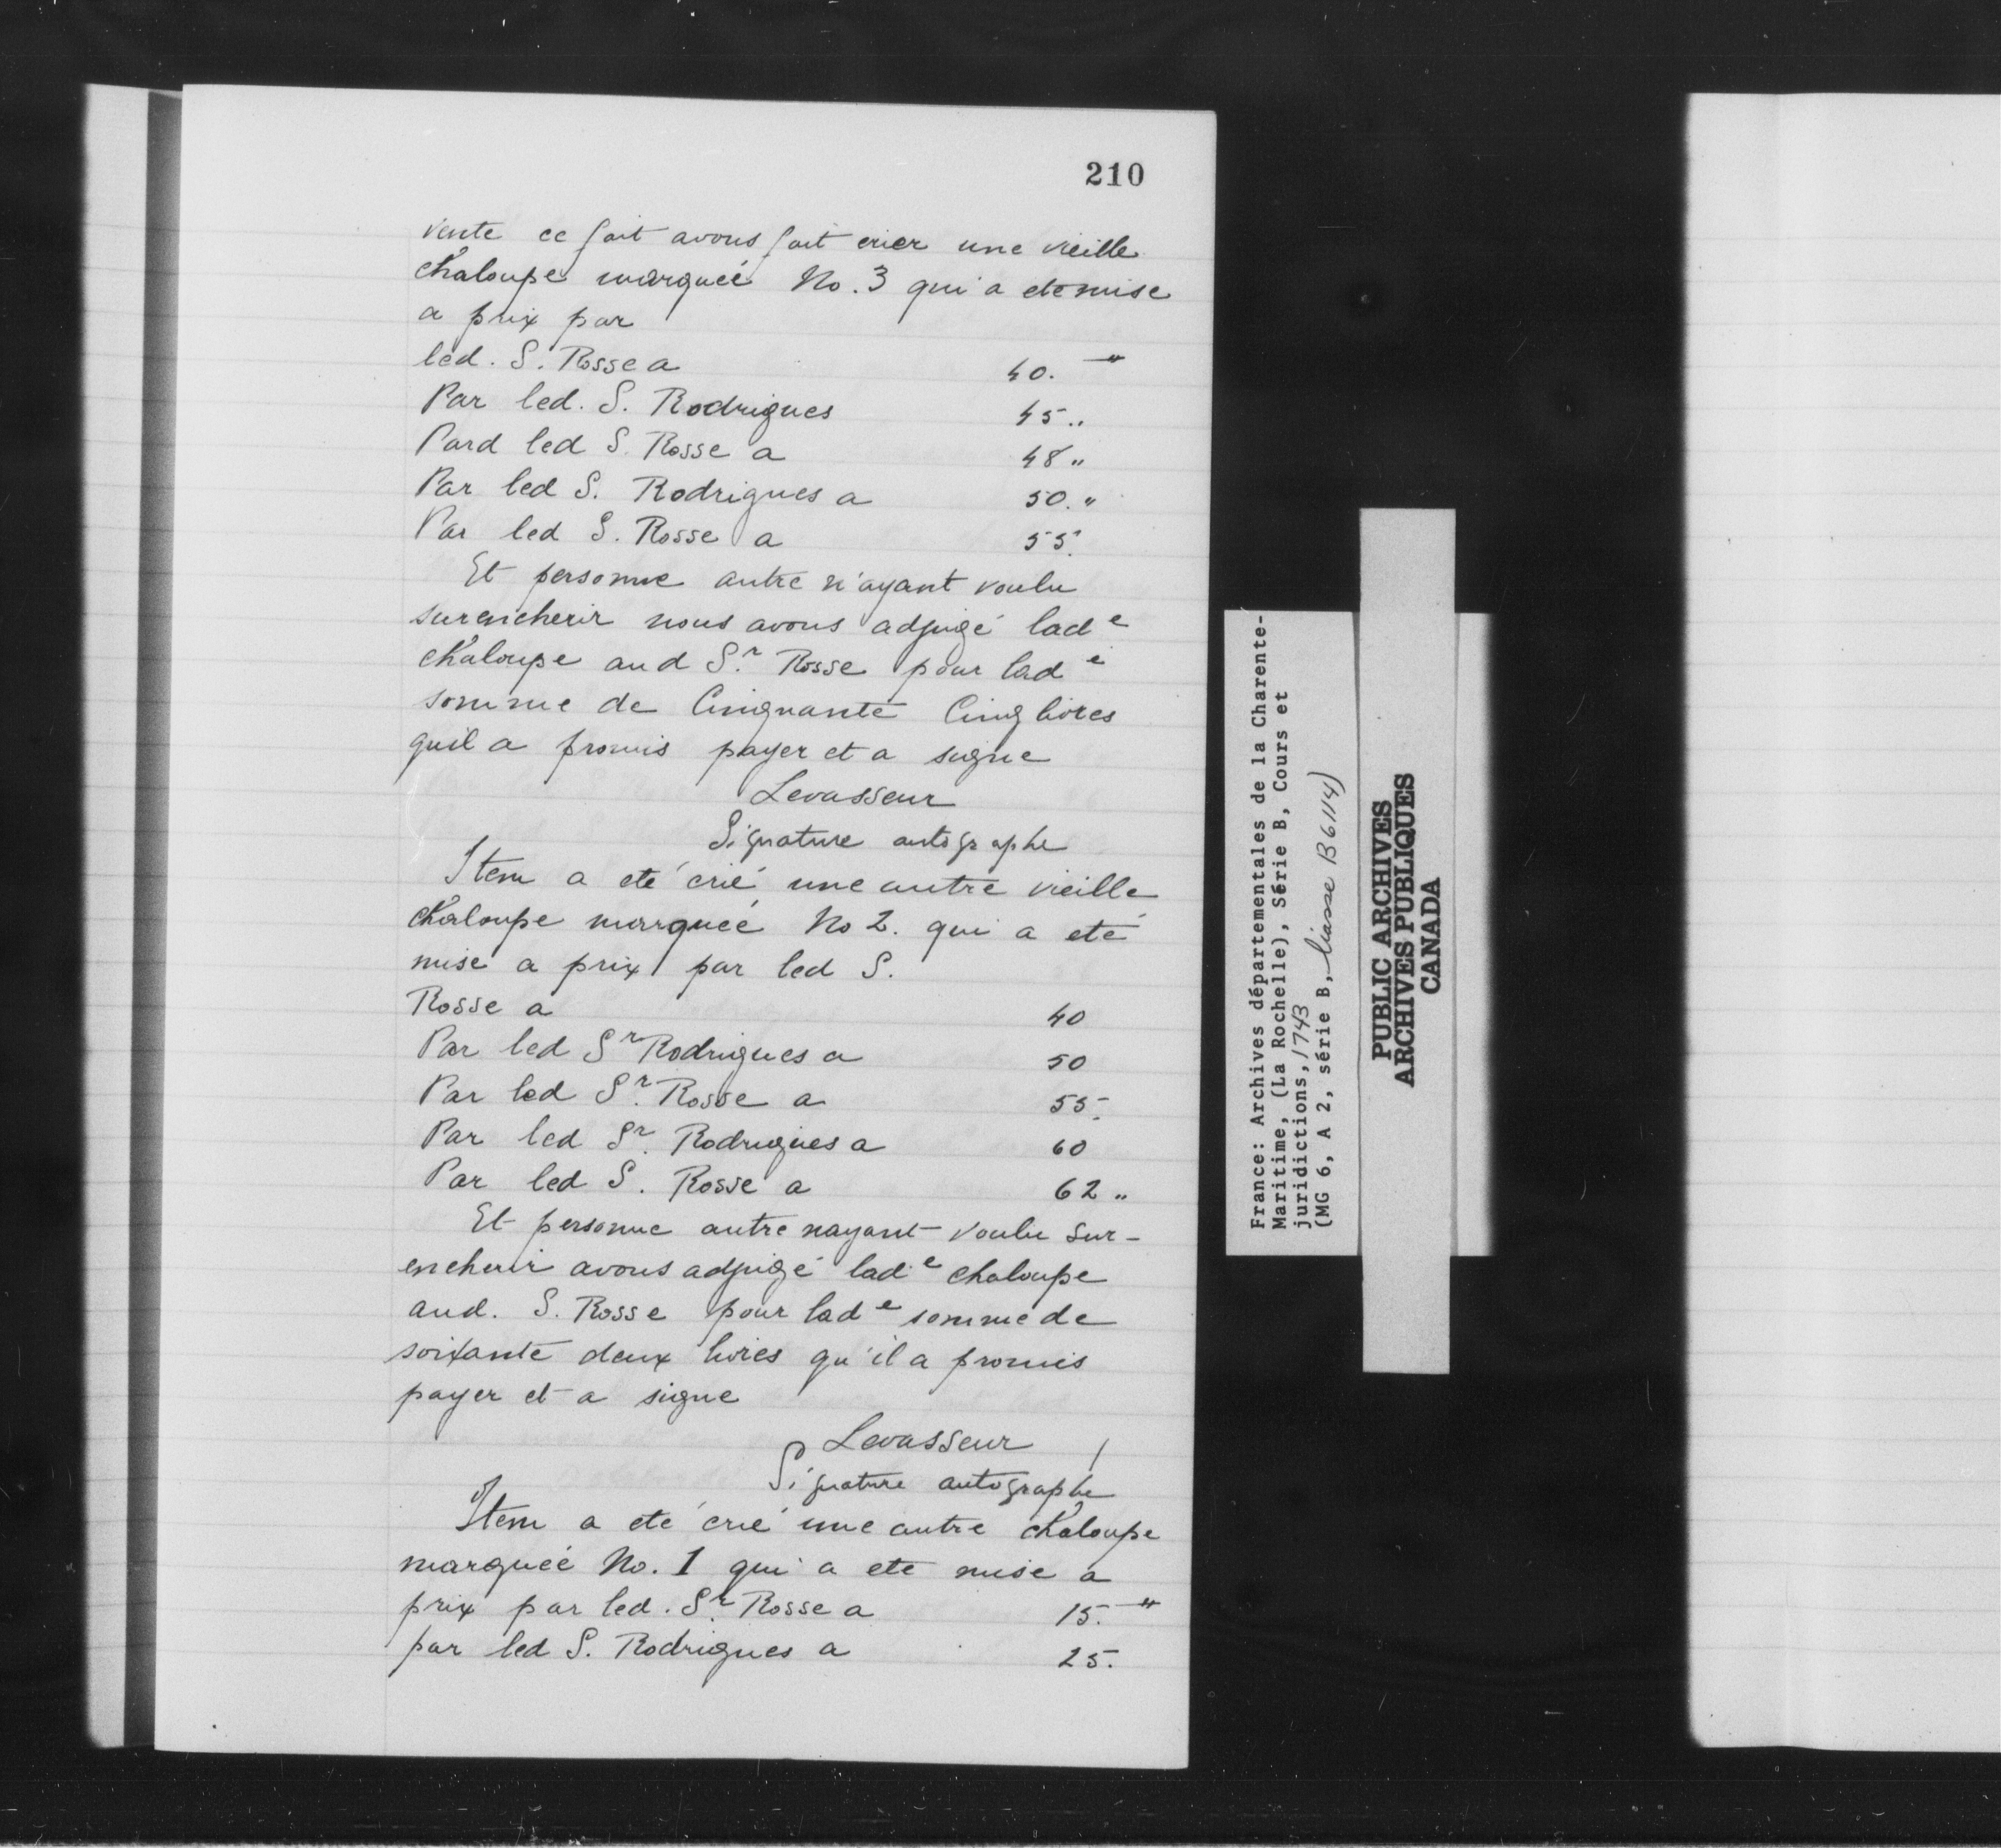 210
vente ce fait avons fait crier une vieille
chaloupe marqueé No. 3 qui a etemise
a prix par
led. S. Rosse a 40. "
Par led. S. Rodrigues 45 "
Pard led S. Rosse a 48 "
Par led S. Rodrigues a 50. "
Par led S. Rosse a 55.
Et personne autre n'ayant voulu
surencherir nous avons adjugé lad e
chaloupe aud S.r Rosse pour lad e
somme de Cinquante Cinq livres
quil a promis payer et a signe
Levasseur
Signature autographe
Item a eté crié une autre vieille
chaloupe marqueé No 2. qui a eté
mise a prix par led S.
Rosse a 40
Par led Sr Rodrigues a 50
Par led Sr. Rosse a 55.
Par led Sr. Rodrigues a 60
Par led S. Rosse a 62 "
Et personne autre nayant voulu sur-
encherir avons adjugé lad e chaloupe
aud. S. Rosse pour lad e somme de
soixante deux livres qu'il a promis
payer et a signe
Levasseur
Signature autographe
Item a eté crié une autre chaloupe
marqueé No. 1 qui a ete mise a
prix par led. Sr. Rosse a 15. "
par led S. Rodrigues a 25.
France: Archives départementales de la Charente-
Maritime, (La Rochelle), Série B, Cours et
juridictions, 1743
(MG 6, A 2, série B, liasse B 6114)
PUBLIC ARCHIVES
ARCHIVES PUBLIQUES
CANADA